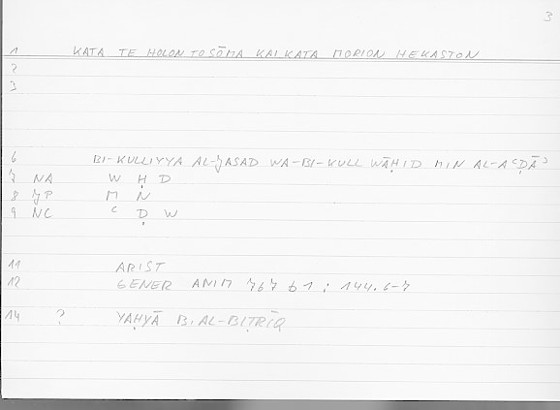 3
1 KATA TE HOLON TO SŌMA KAI KATA MORION HEKASTON
2
3
6 BI-KULLIYYA AL-JASAD WA-BI-KULL WĀḤID MIN AL-AʿḌĀʾ
7 NA W Ḥ D
8 JP M N
9 NC ʿ Ḍ W
11 ARIST
12 GENER ANIM 767 b1 ; 144.6-7
14 ? YAḤYĀ B. AL-BIṬRĪQ